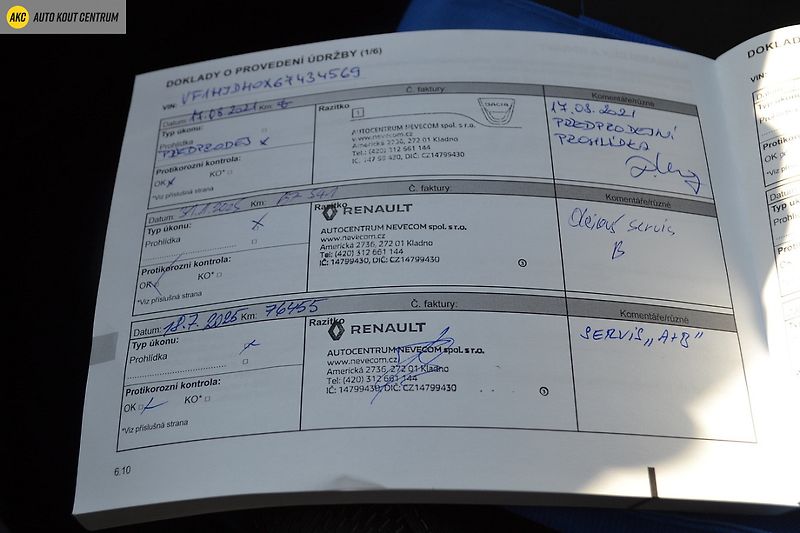 AKC AUTO KOUT CENTRUM
DOKLADY O PROVEDENÍ ÚDRŽBY (1/6)
DOKLADY
VIN: VF1HJD40X67434569
VIN:
Datum: 17.08.2021 Km:
Č. faktury:
Komentáře/různé
Typ úkonu:
Prohlídka
PŘEDPRODEJ x
Protikorozní kontrola:
OK x KO*
*Viz příslušná strana
Razítko 1
DACIA
AUTOCENTRUM NEVECOM spol. s r.o.
www.nevecom.cz
Americká 2736, 272 01 Kladno
Tel.: (420) 312 661 144
IČ: 147 99 430, DIČ: CZ14799430
17.08.2021
PŘEDPRODEJNÍ
PROHLÍDKA
Datum: Km:
Č. faktury:
Komentáře/různé
Typ úkonu: x
Prohlídka
Protikorozní kontrola:
OK KO*
*Viz příslušná strana
Razítko
RENAULT
AUTOCENTRUM NEVECOM spol. s r.o.
www.nevecom.cz
Americká 2736, 272 01 Kladno
Tel: (420) 312 661 144
IČ: 14799430, DIČ: CZ14799430
3
Olejový servis
B
Datum: 18.7. Km: 76455
Č. faktury:
Komentáře/různé
Typ úkonu:
Prohlídka
Protikorozní kontrola:
OK KO*
*Viz příslušná strana
Razítko
RENAULT
AUTOCENTRUM NEVECOM spol. s r.o.
www.nevecom.cz
Americká 2736, 272 01 Kladno
Tel: (420) 312 661 144
IČ: 14799430, DIČ: CZ14799430
3
SERVIS „A+B"
6.10